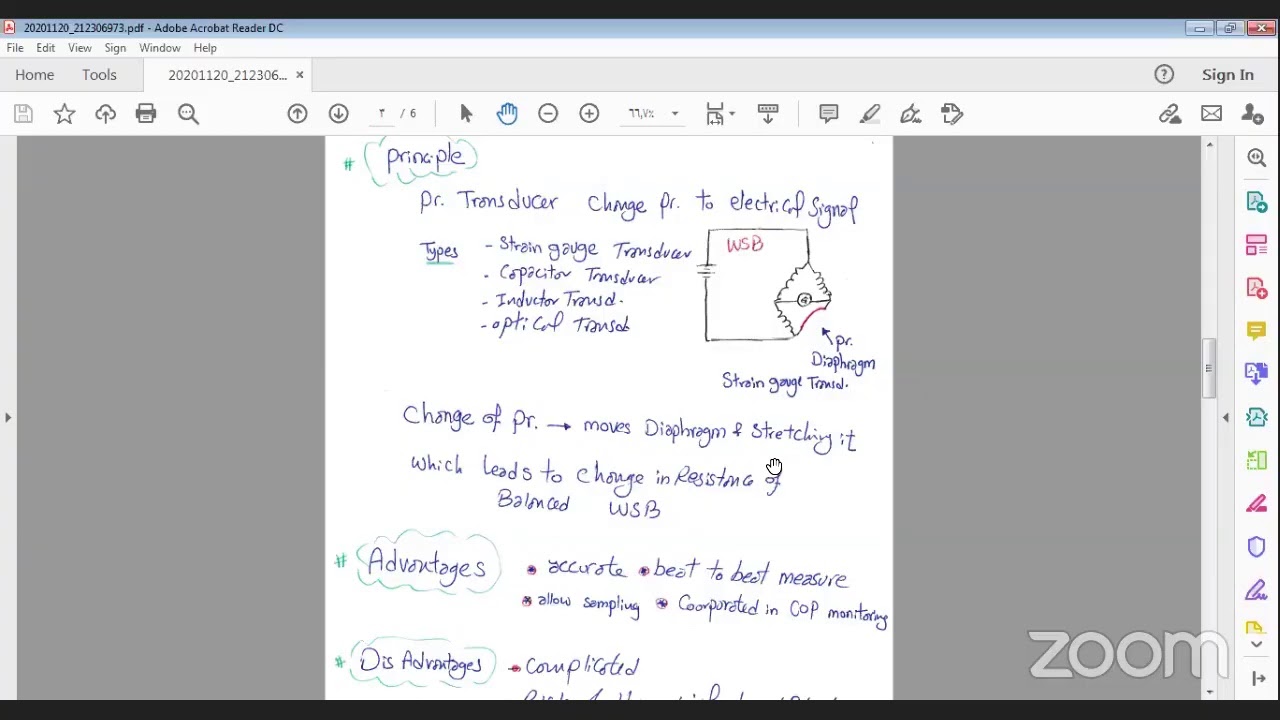 20201120_212306973.pdf - Adobe Acrobat Reader DC
File Edit View Sign Window Help
Home Tools 20201120_212306... × Sign In
٣ / 6 ٦٦,٧%
# Principle
Pr. Transducer Change Pr. to electrical Signal
Types - Strain gauge Transducer
- Capacitor Transducer
- Inductor Transd.
- optical Transd
WSB
G
Pr.
Diaphragm
Strain gauge Transd.
Change of Pr. → moves Diaphragm & Stretching it
which leads to Change in Resistance of
Balanced WSB
# Advantages * accurate * beat to beat measure
* allow sampling * Coorporated in COP monitoring
# Dis Advantages - Complicated
zoom